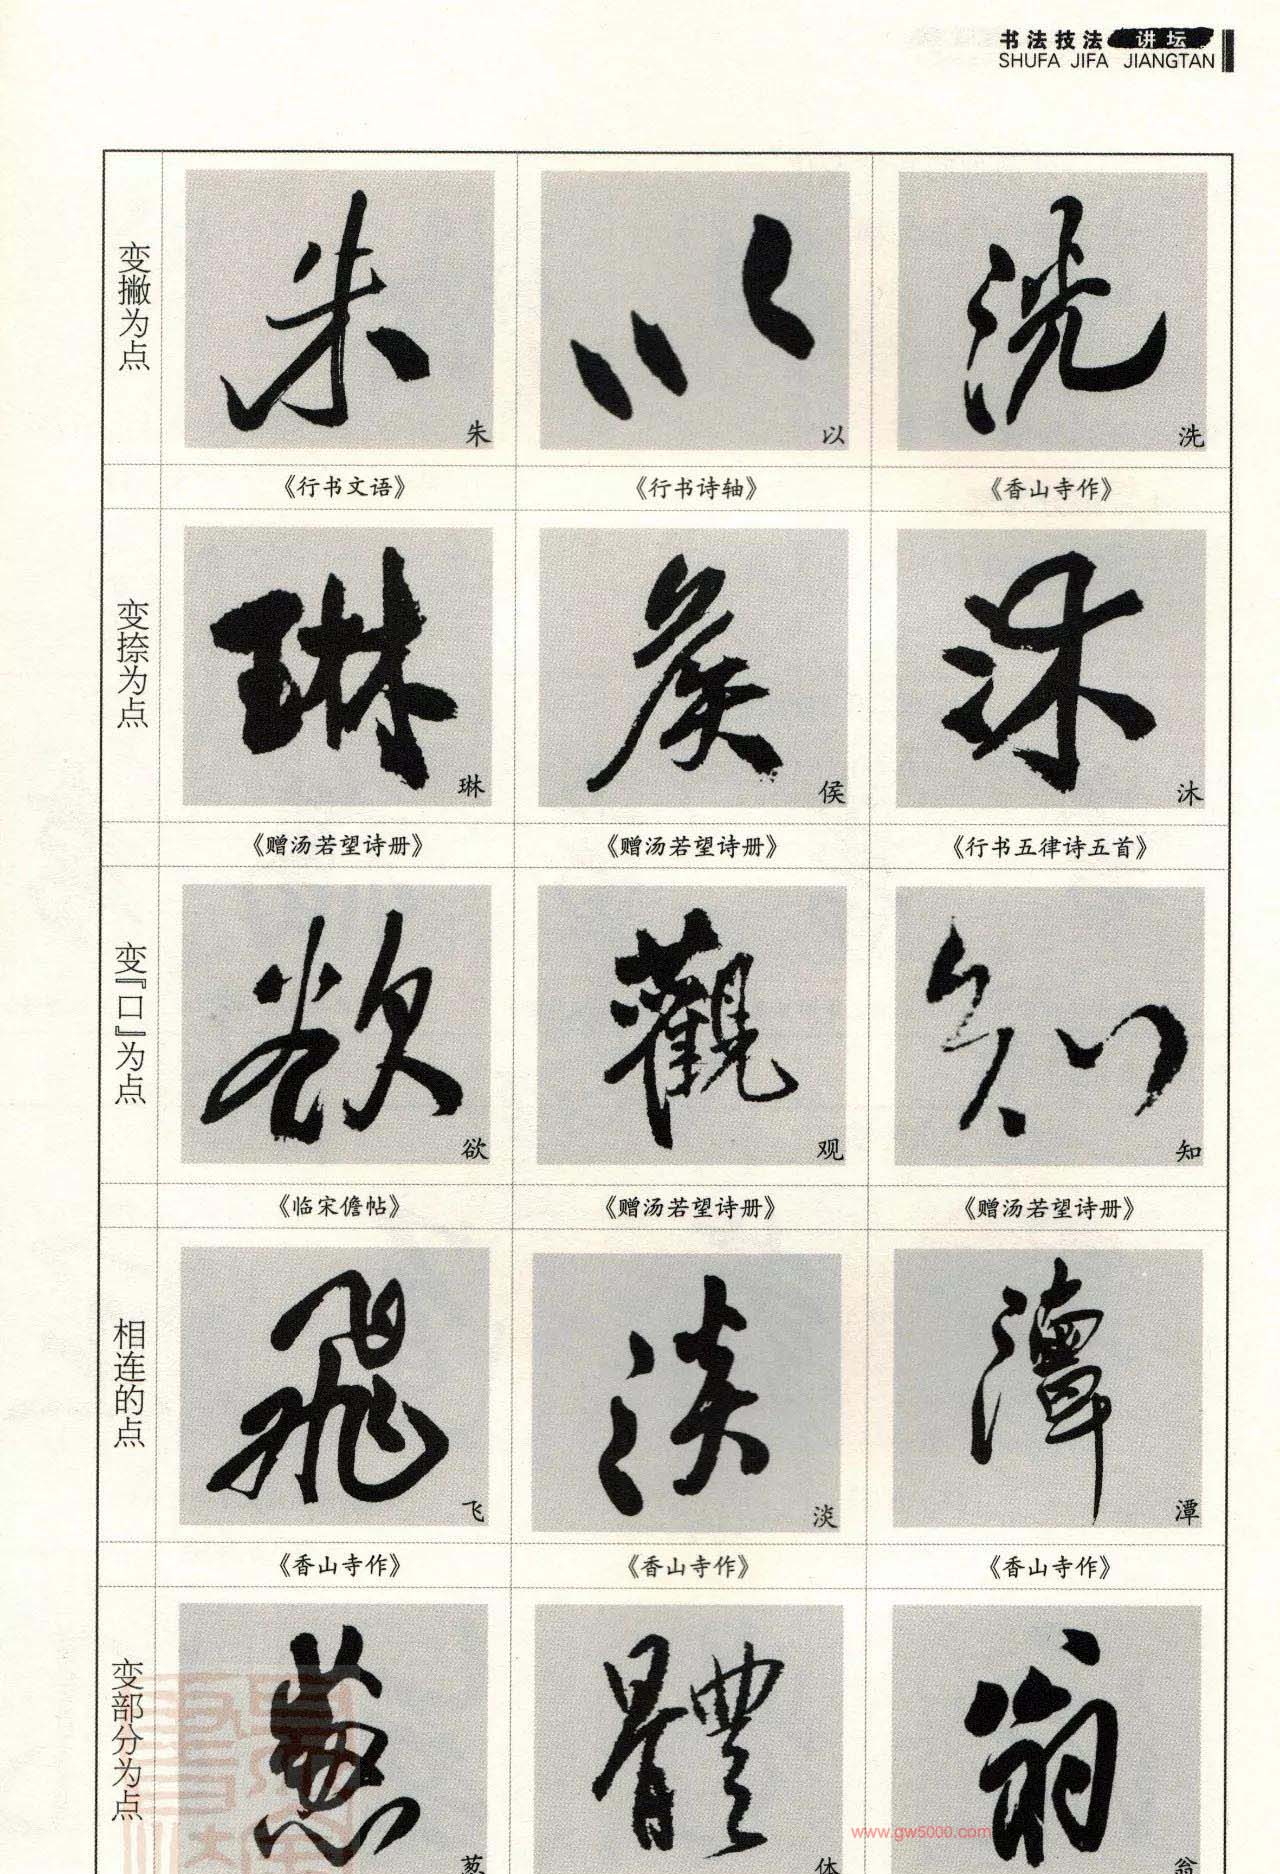 书法技法 讲坛
SHUFA JIFA JIANGTAN
变撇为点
朱
以
洗
《行书文语》
《行书诗轴》
《香山寺作》
变捺为点
琳
侯
沐
《赠汤若望诗册》
《赠汤若望诗册》
《行书五律诗五首》
变『口』为点
欲
观
知
《临宋儋帖》
《赠汤若望诗册》
《赠汤若望诗册》
相连的点
飞
淡
潭
《香山寺作》
《香山寺作》
《香山寺作》
变部分为点
葱
体
翁
www.gw5000.com